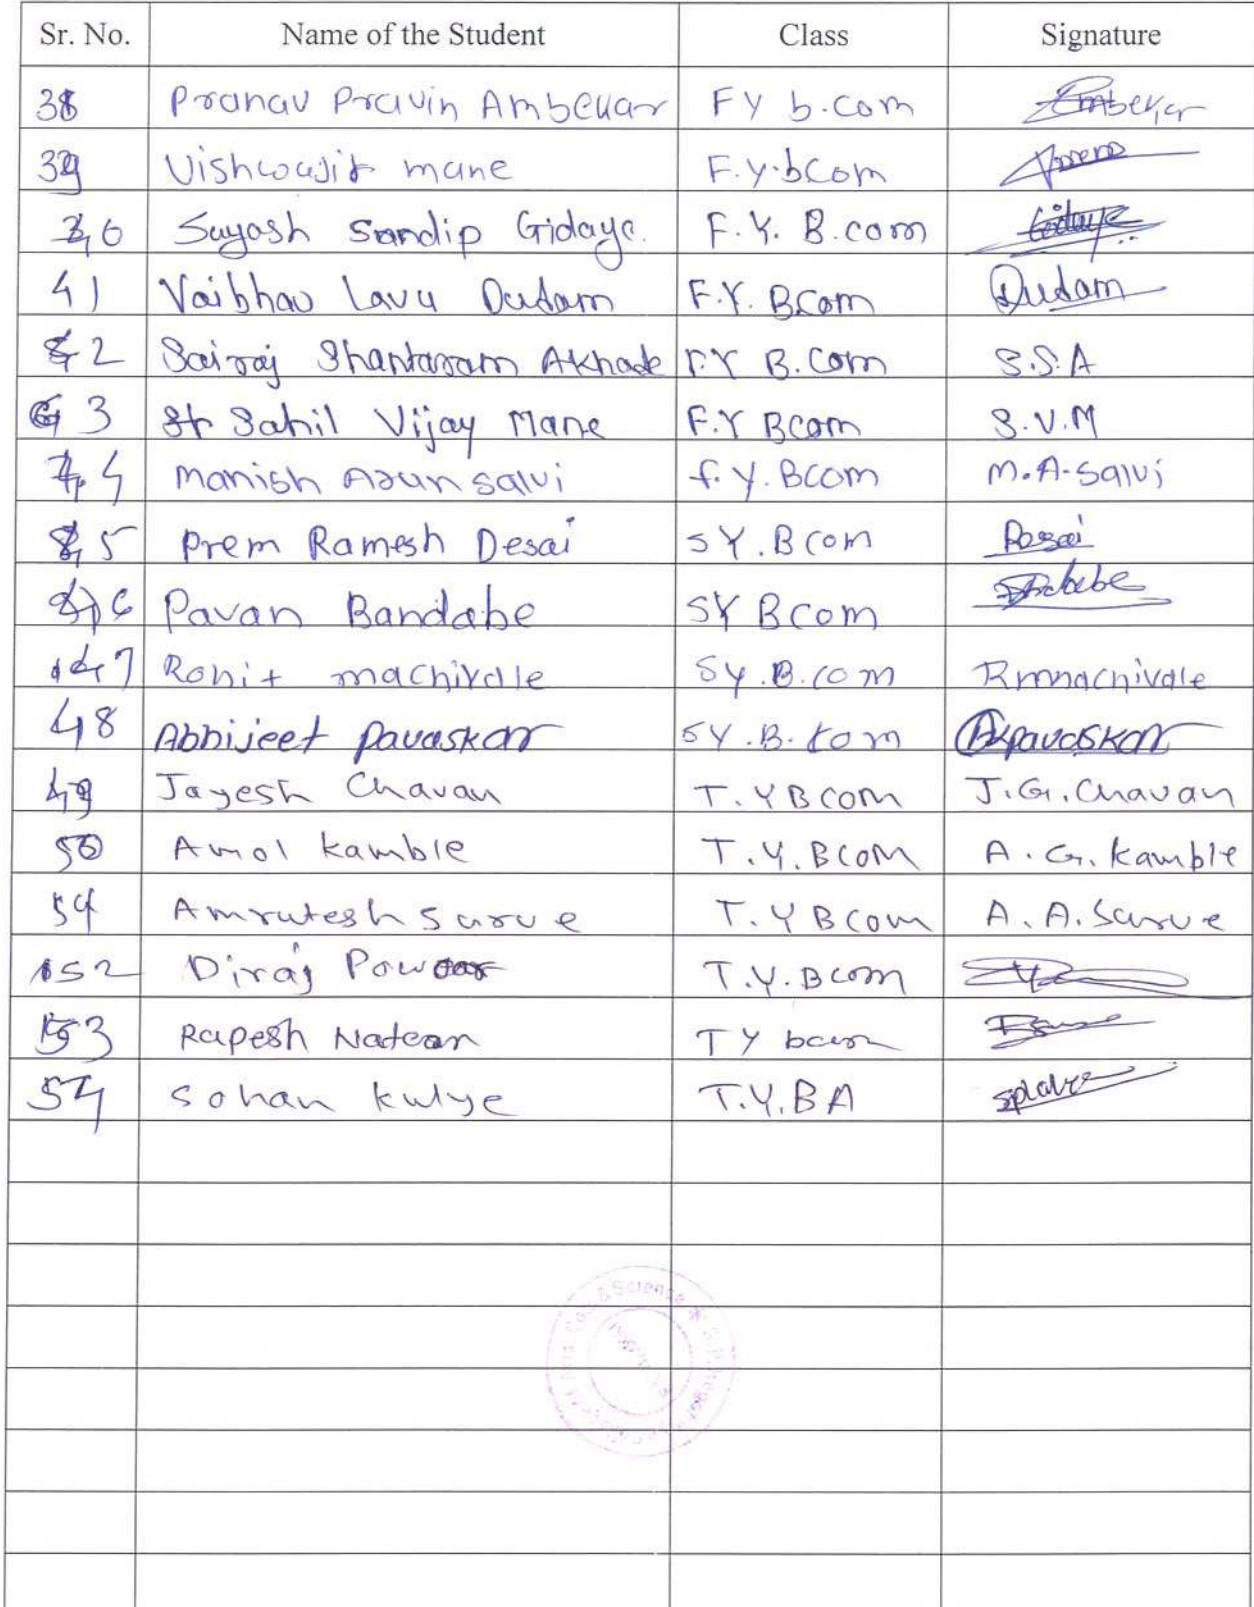 Sr. No. Name of the Student Class Signature
38 Pranav Pravin Ambekar FY b.com Ambekar
39 Vishwajit mane F.Y.bcom
40 Suyash Sandip Gidaye. F.Y. B.com Gidaye
41 Vaibhav Lavu Dudam F.Y. B.com Dudam
42 Sairaj Shantaram Akhade F.Y B.Com S.S.A
43 Sahil Vijay Mane F.Y Bcom S.V.M
44 Manish Arun salvi f.y.Bcom M.A.Salvi
45 Prem Ramesh Desai SY.Bcom Desai
46 Pavan Bandabe SY Bcom
47 Rohit machivale Sy.B.com Rmmachivale
48 Abhijeet Pavaskar SY.B.com Pavaskar
49 Jayesh Chavan T.YBcom J.G.Chavan
50 Amol kamble T.Y.BCOM A.G.kamble
51 Amrutesh Surve T.YBcom A.A.Surve
52 Diraj Pow T.Y.Bcom
53 Rupesh TY bcom
54 Sohan kulye T.Y.BA
& Science